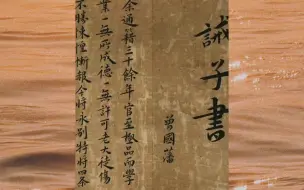 誡子書
曾國藩
余通籍三十餘年官至極品而學
業一無所成德一無許可老大徒傷
不勝悚惶慚赧今將永別特將四